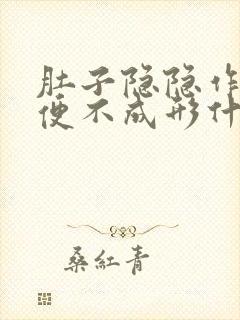 肚子隐隐作
便不成形什
桑紅青